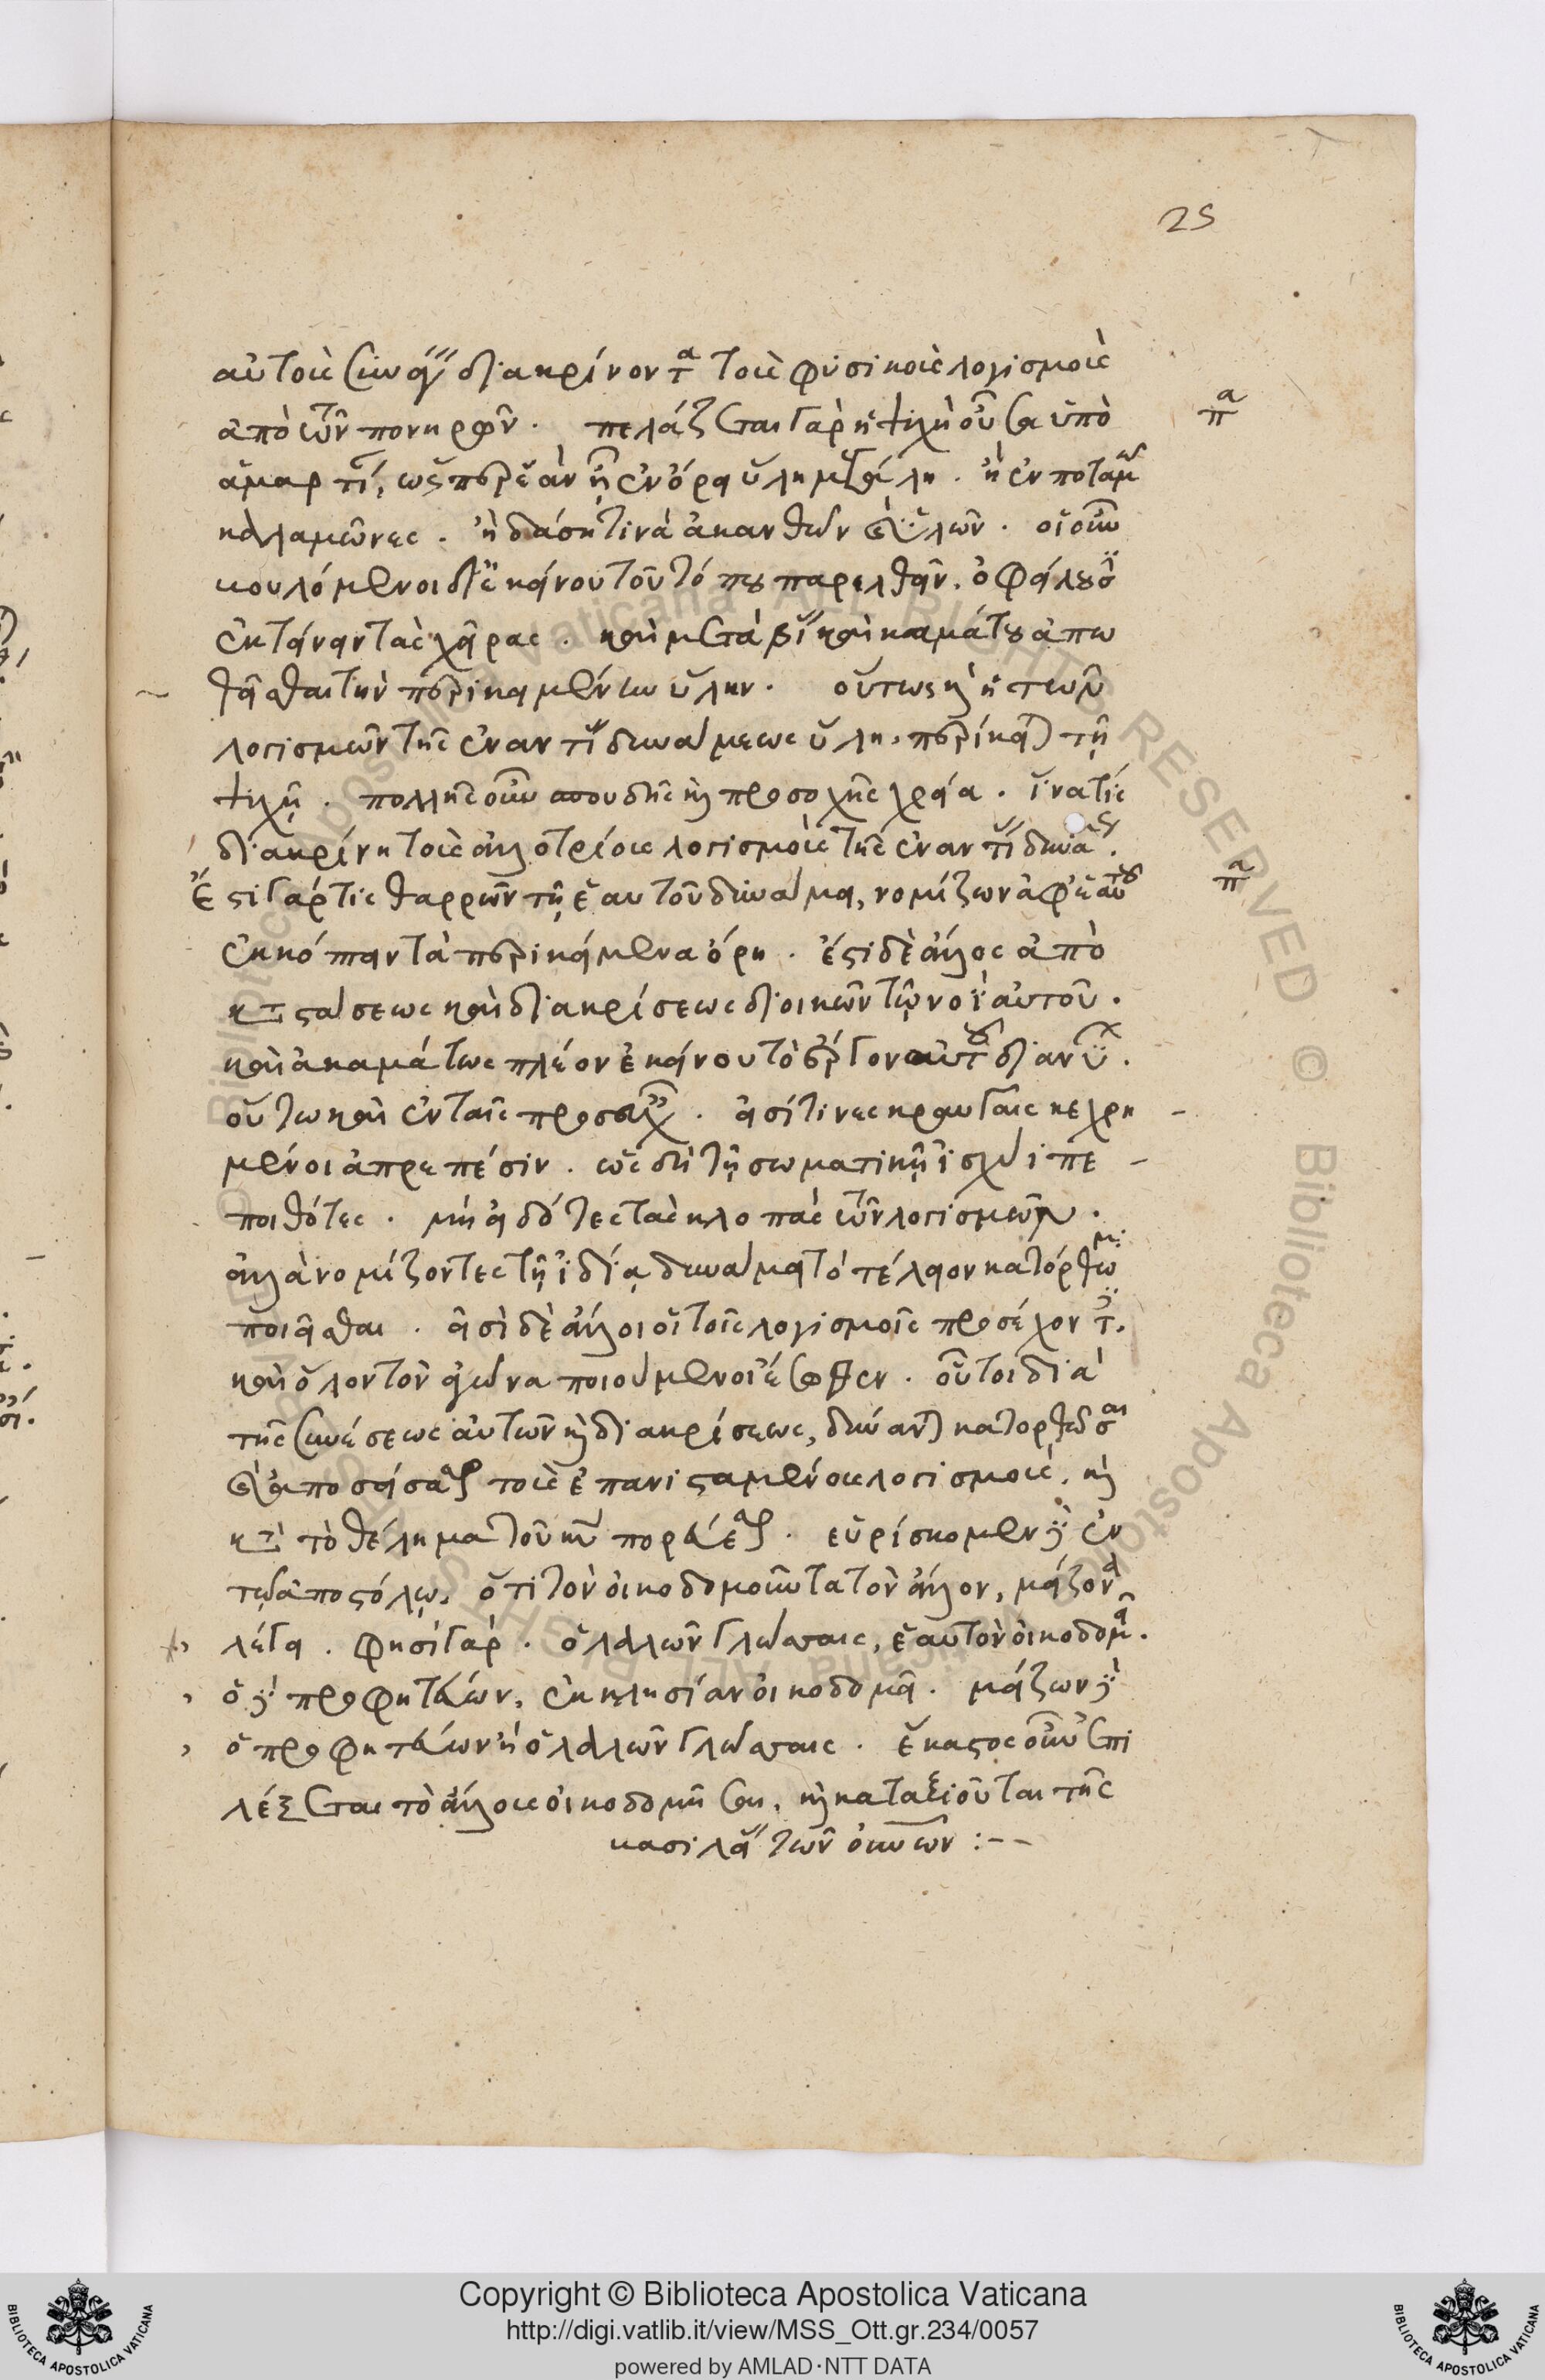 25
αὐτοῖς συνείναι διακρίνοντα τοῖς φυσικοῖς λογισμοῖς
ἀπὸ τῶν πονηρῶν. πελάζεται γὰρ ἡ ψυχὴ οὖσα ὑπὸ
ἁμαρτίαν, ὥσπερ ἐὰν ᾖ ἐν ὄρει ὕλη μεγάλη. ἢ ἐν ποταμῷ
καλαμῶνες. ἢ δάση τινὰ ἀκανθῶν καὶ ξύλων. οἱ οὖν
βουλόμενοι δι' ἐκείνου τοῦ τόπου παρελθεῖν, ὀφείλουσιν
ἐκτείνειν τὰς χεῖρας. καὶ μετὰ βίας καὶ καμάτου ἀπω
θεῖσθαι τὴν περικειμένην ὕλην. οὕτως καὶ ἡ τῶν
λογισμῶν τῆς ἐναντίας δυνάμεως ὕλη, περίκειται τῇ
ψυχῇ. πολλῆς οὖν σπουδῆς καὶ προσοχῆς χρεία. ἵνα τίς
διακρίνη τοῖς ἀλλοτρίοις λογισμοῖς τῆς ἐναντίας δυνάμεως.
Ἔστι γάρ τις θαρρῶν τῇ ἑαυτοῦ δυνάμει, νομίζων ἀφ' ἑαυτοῦ
ἐκκόπτειν τὰ περικείμενα ὄρη. ἔστι δὲ ἄλλος ἀπὸ
καταστάσεως καὶ διακρίσεως διοικῶν τῷ νοῒ αὐτοῦ.
καὶ ἀκαμάτως πλέον ἐκείνου τὸ ἔργον αὐτοῦ διανύει.
οὕτω καὶ ἐν ταῖς προσευχαῖς. εἰσί τινες κραυγαῖς κεχρη
μένοι ἀπρεπέσιν. ὡς δὴ τῇ σωματικῇ ἰσχύϊ πε
ποιθότες. μὴ εἰδότες τὰς κλοπὰς τῶν λογισμῶν.
ἀλλὰ νομίζοντες τῇ ἰδίᾳ δυνάμει τὸ τέλειον κατόρθωμα
ποιεῖσθαι. εἰσὶ δὲ ἄλλοι οἱ τοῖς λογισμοῖς προσέχοντες.
καὶ ὅλον τὸν ἀγῶνα ποιούμενοι ἔσωθεν. οὗτοι διὰ
τῆς συνέσεως αὐτῶν καὶ διακρίσεως, δύνανται κατορθῶσαι
καὶ ἀποσείσασθαι τοῖς ἐπανισταμένοις λογισμοῖς. καὶ
κατὰ τὸ θέλημα τοῦ κυ πορεύεσθαι. εὑρίσκομεν δὲ ἐν
τῷ ἀποστόλῳ, ὅτι τὸν οἰκοδομοῦντα τὸν ἄλλον, μείζονα
λέγει. φησὶ γάρ. ὁ λαλῶν γλώσσαις, ἑαυτὸν οἰκοδομεῖ.
ὁ δὲ προφητεύων, ἐκκλησίαν οἰκοδομεῖ. μείζων δὲ
ὁ προφητεύων ἢ ὁ λαλῶν γλώσσαις. ἕκαστος οὖν ἐπι
λέξεται τὸ ἄλλοις οἰκοδομῆσαι, καὶ καταξιοῦται τῆς
βασιλείας τῶν οὐνῶν :--
Copyright © Biblioteca Apostolica Vaticana
http://digi.vatlib.it/view/MSS_Ott.gr.234/0057
powered by AMLAD·NTT DATA